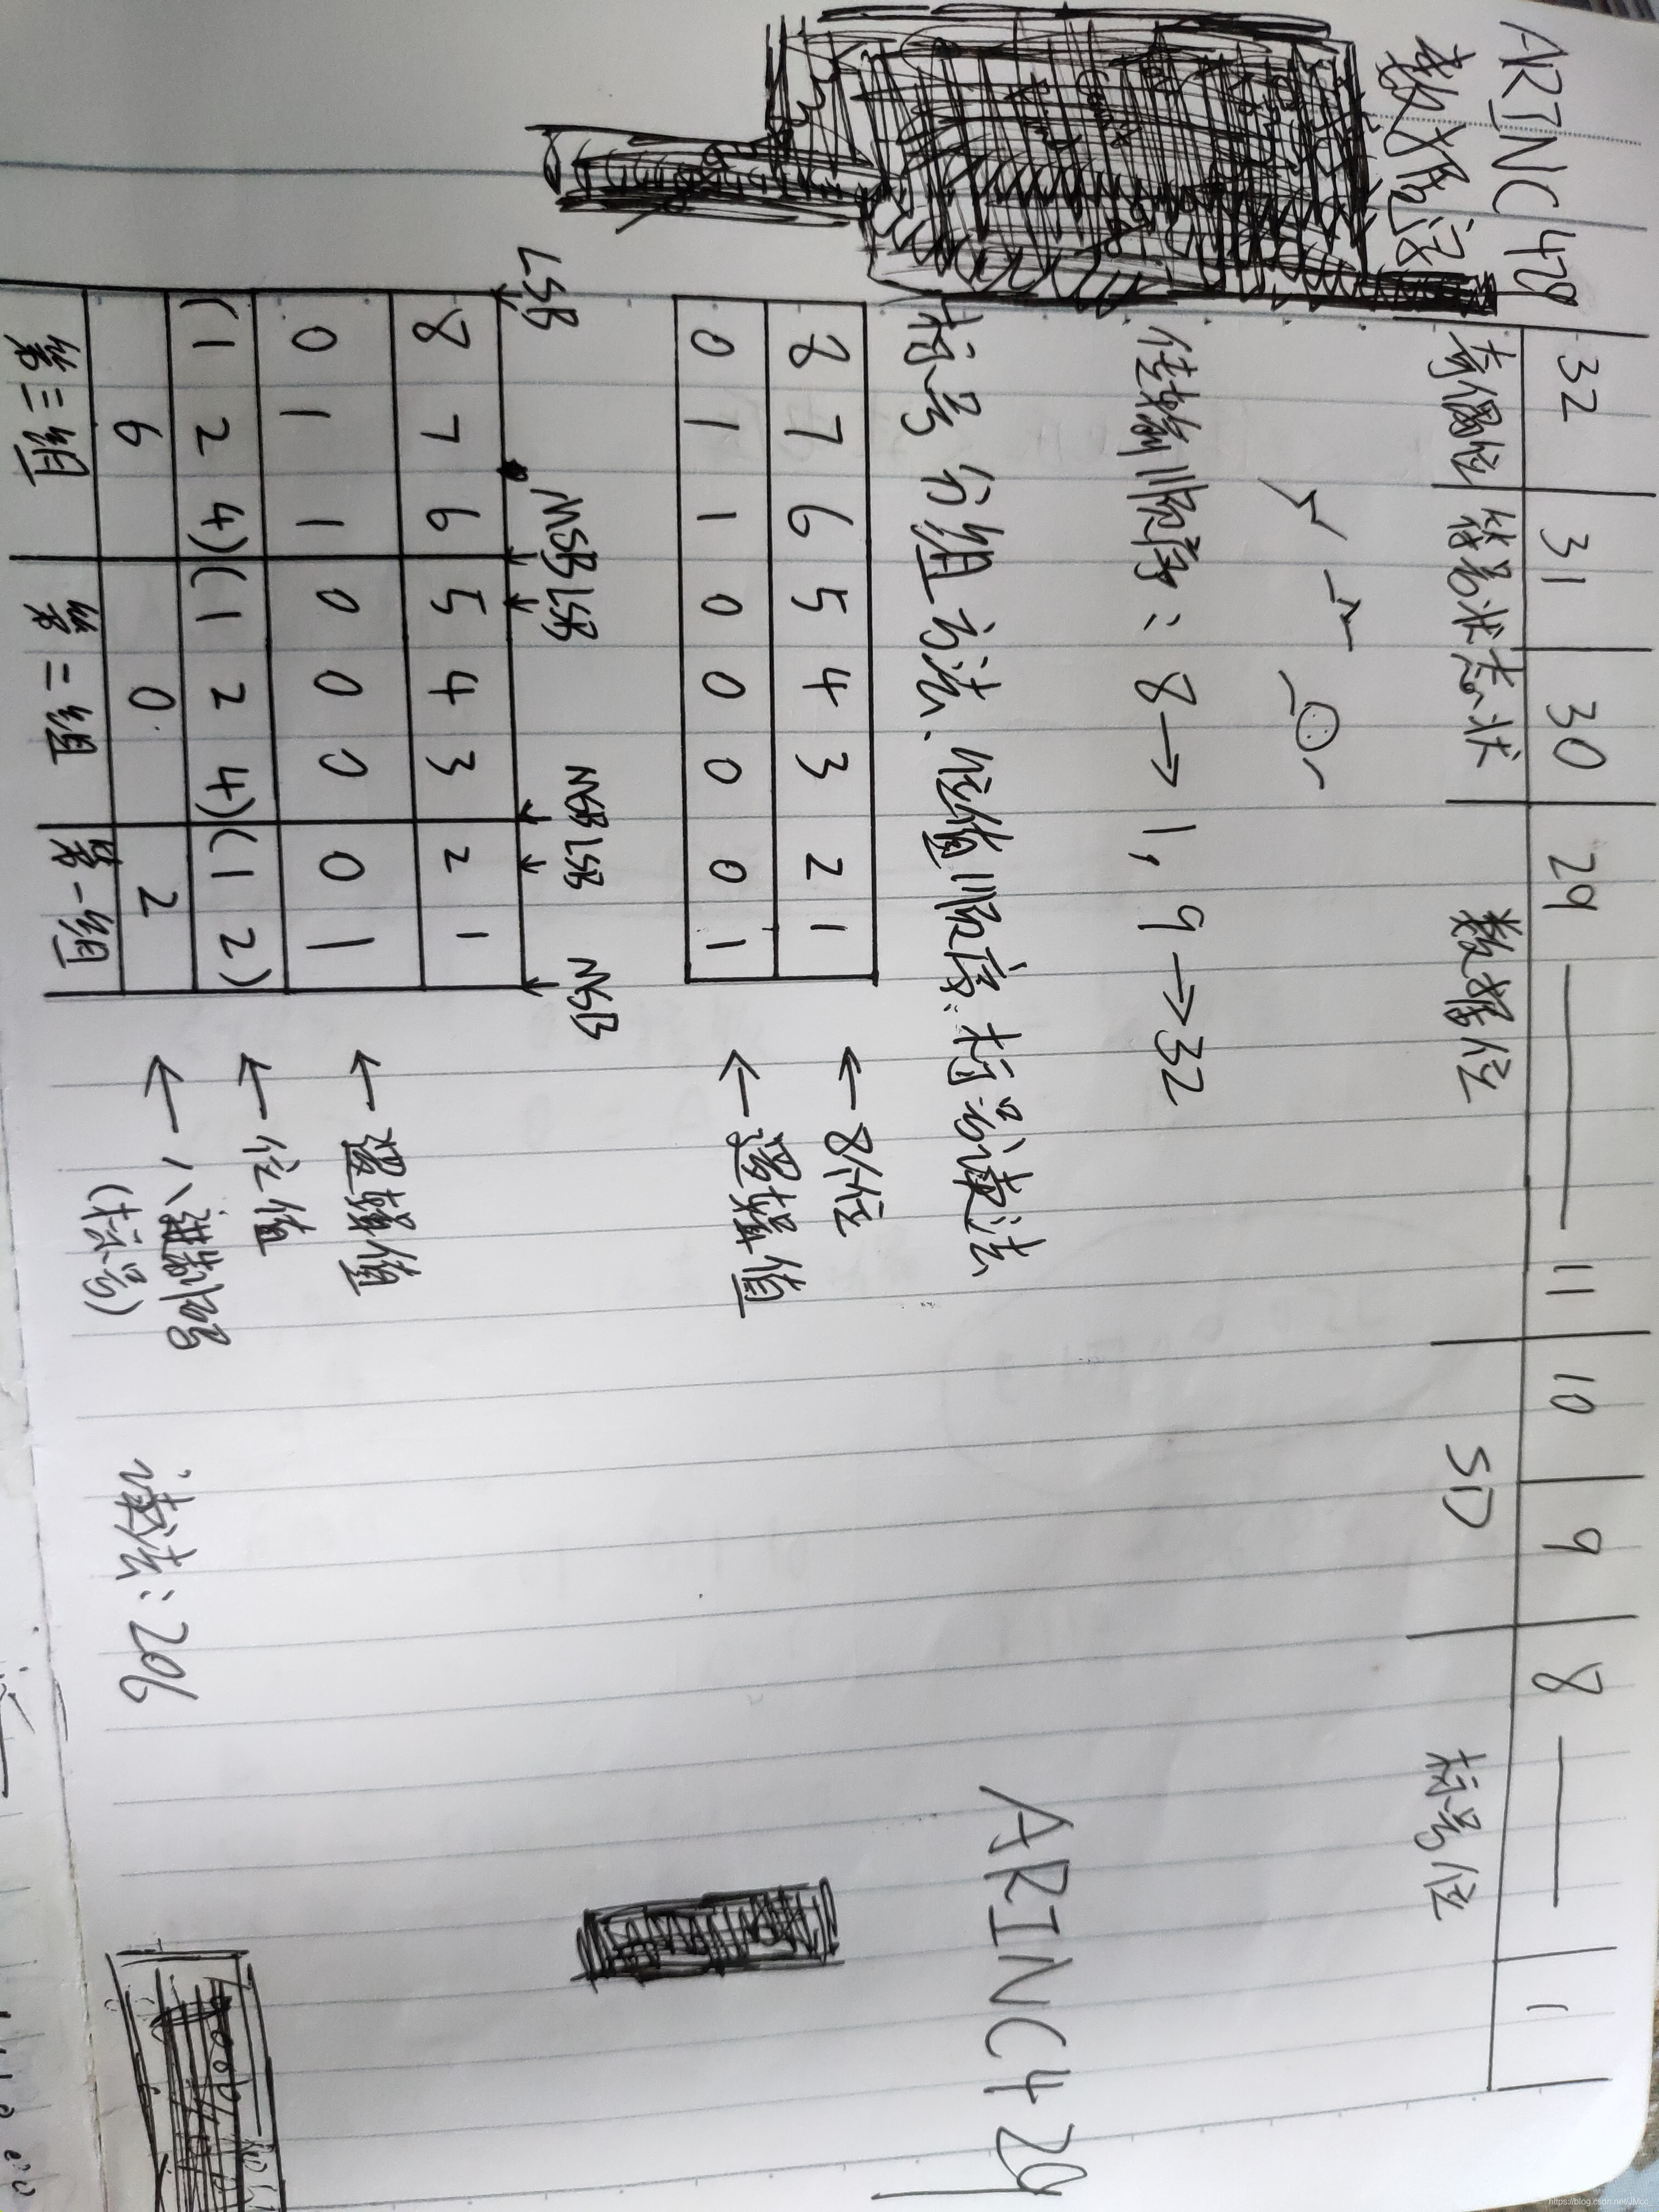 ARINC429
数据字
32 31 30 29 —— 11 10 9 8 —— 1
奇偶位 符号状态状 数据位 SD 标号位
传输顺序：8→1，9→32
标号 分组方法、位值顺序、标号读法
8 7 6 5 4 3 2 1 ←8位
0 1 1 0 0 0 0 1 ←逻辑值
ARINC429
LSB MSB LSB MSB LSB MSB
8 7 6 5 4 3 2 1
0 1 1 0 0 0 0 1 ←逻辑值
(1 2 4) (1 2 4) (1 2) ←位值
6 0 2 ←八进制码
(标号)
第三组 第二组 第一组
读法：206
https://blog.csdn.net/JMcc_